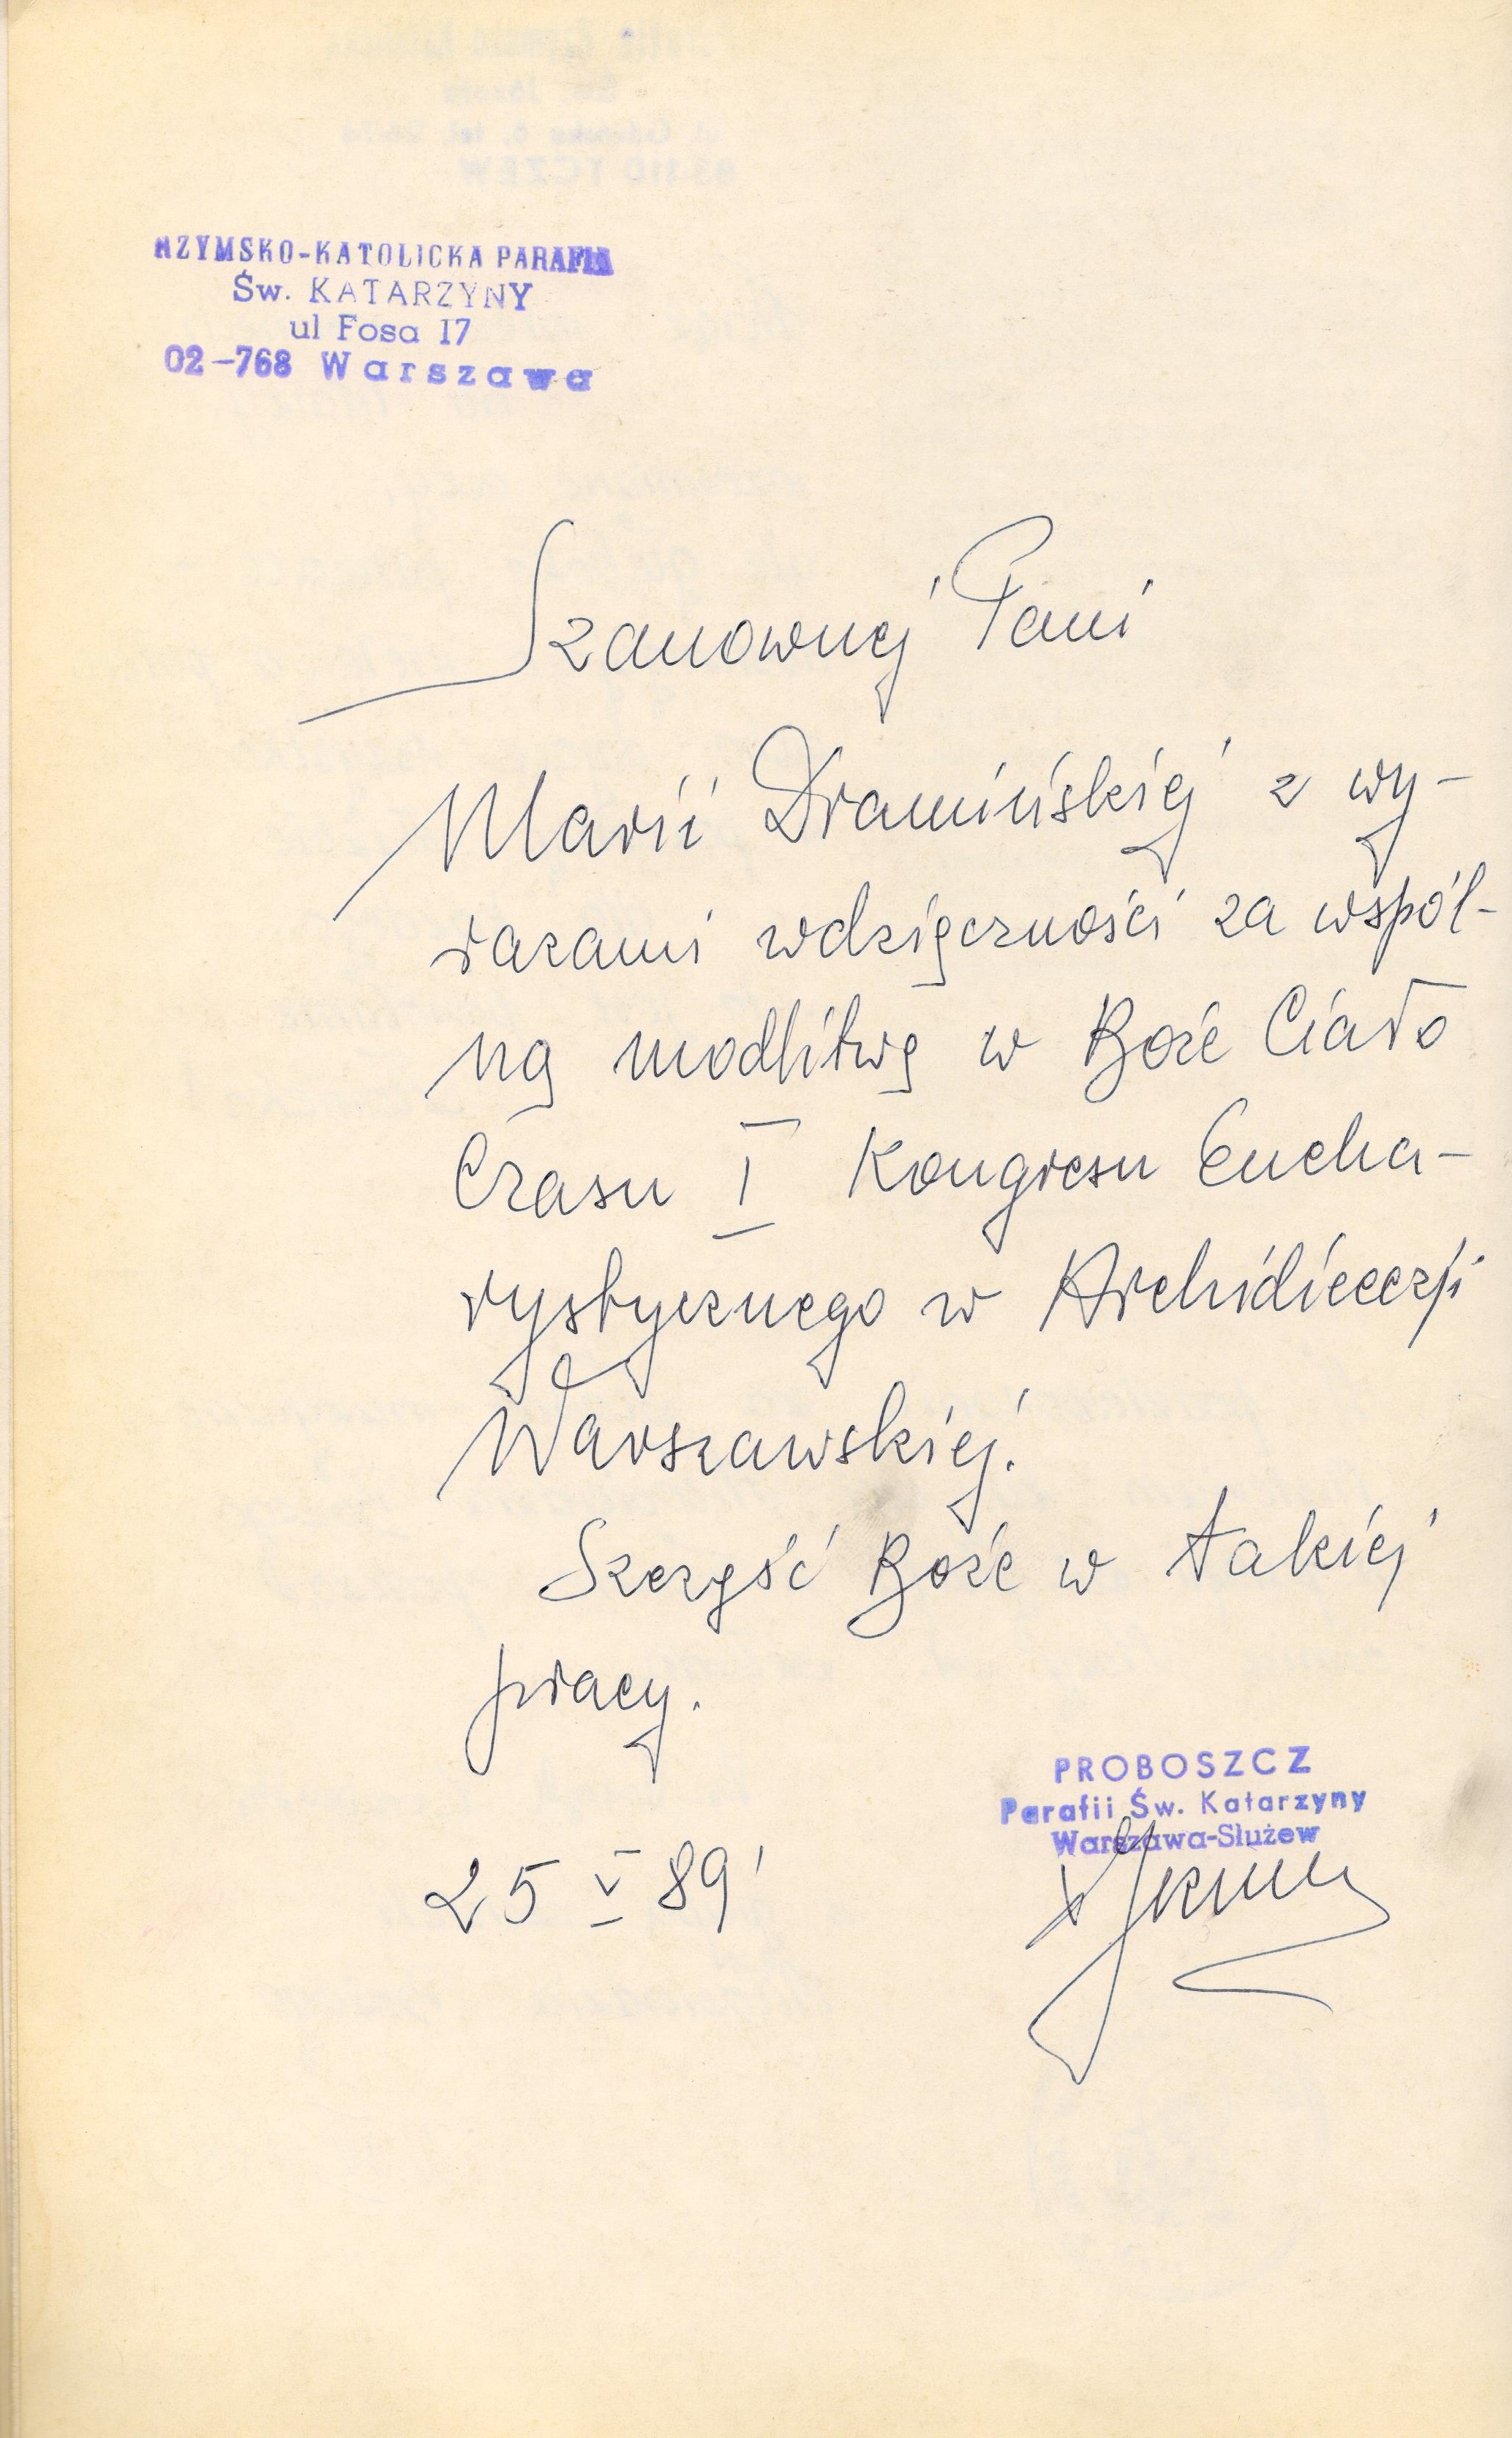 RZYMSKO-KATOLICKA PARAFIA
Św. KATARZYNY
ul Fosa 17
02-768 Warszawa
Szanownej Pani
Marii Dramińskiej z wy-
razami wdzięczności za wspól-
ną modlitwę w Boże Ciało
Czasu I Kongresu Eucha-
rystycznego w Archidiecezji
Warszawskiej.
Szczęść Boże w takiej
pracy.
PROBOSZCZ
Parafii Św. Katarzyny
Warszawa-Służew
25 V 89'